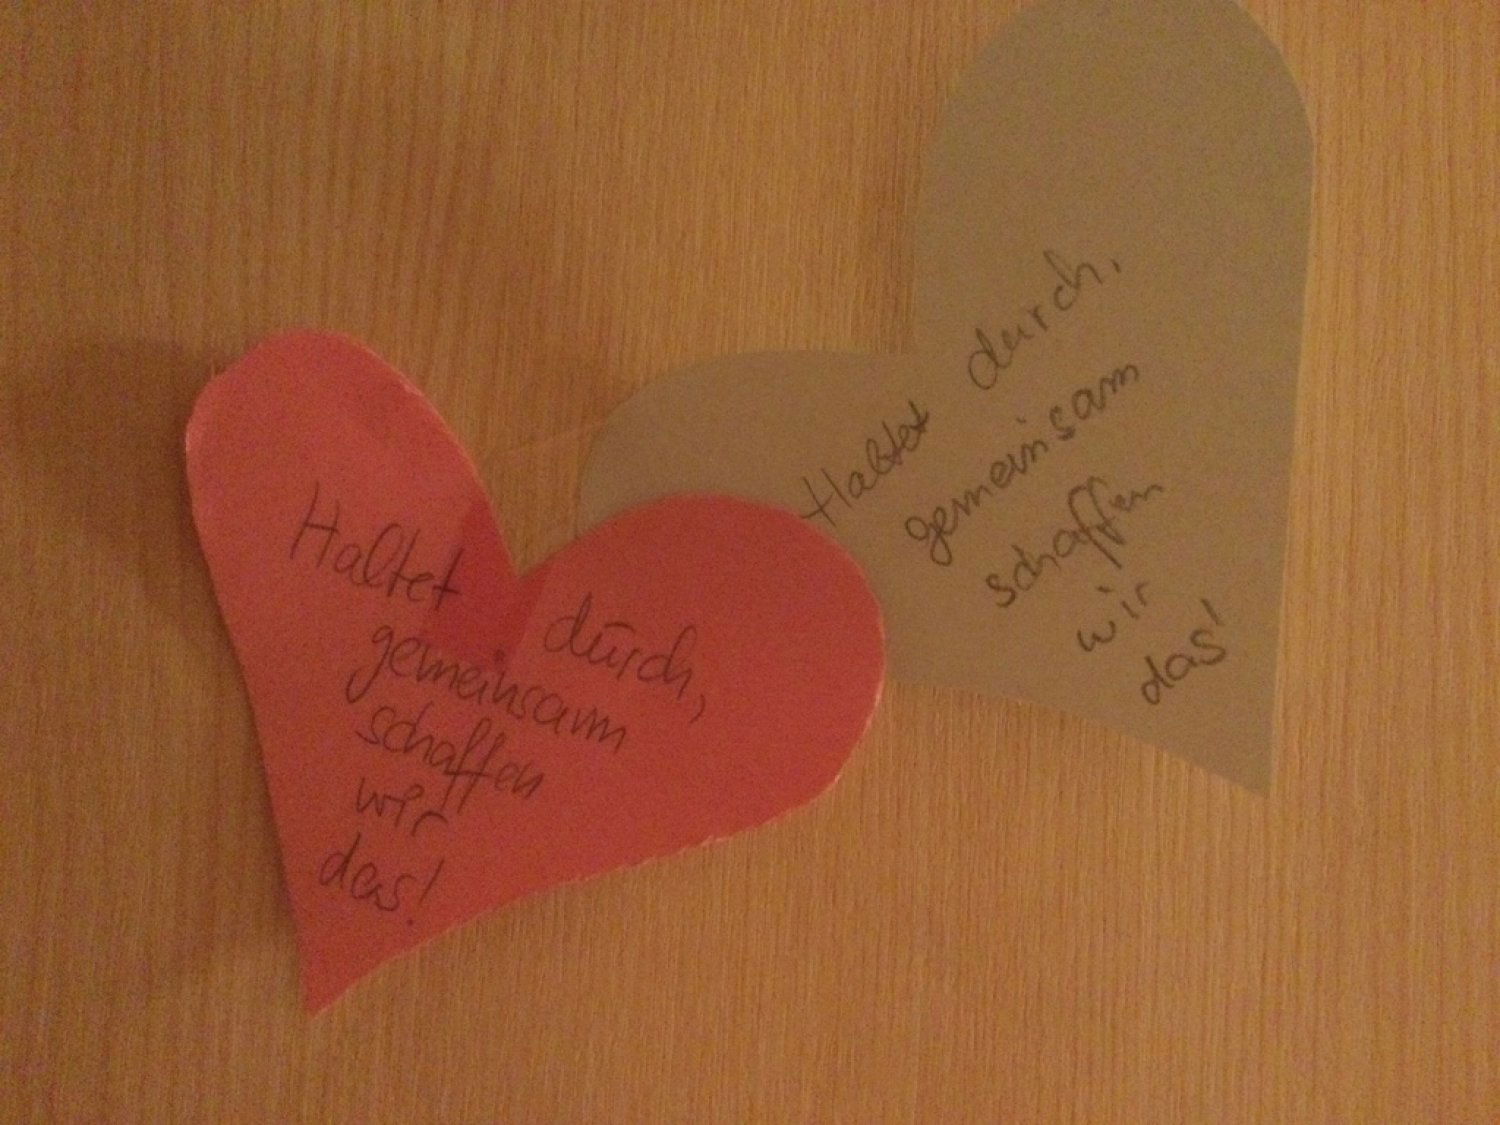 Haltet durch,
gemeinsam
schaffen
wir
das!
Haltet durch,
gemeinsam
schaffen
wir
das!